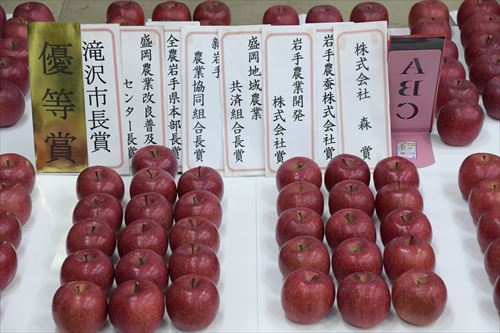 優等賞
滝沢市長賞
盛岡農業改良普及
センター長賞
全農岩手県本部長賞
新岩手
農業協同組合長賞
盛岡地域農業
共済組合長賞
岩手農業開発
株式会社賞
岩手農蚕株式会社賞
株式会社 森 賞
ABC